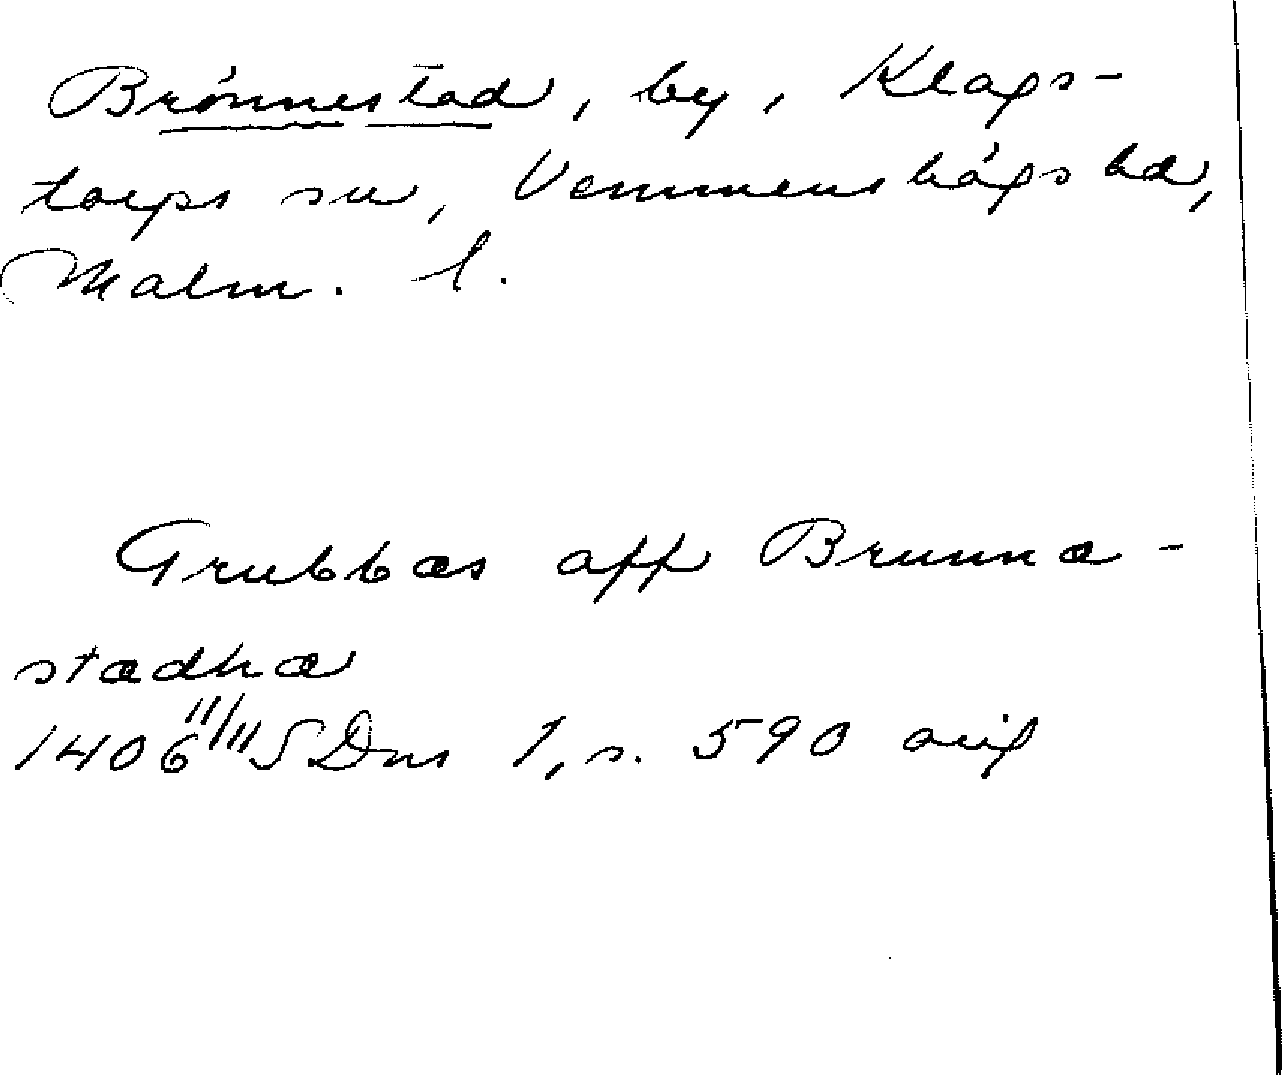 Brönnestad, by, Klags-
torps sn, Vemmenhögs hd,
Malm. l.
Grubbæs aff Brunnæ-
stædhæ
1406 11/11 SDns 1, s. 590 orig